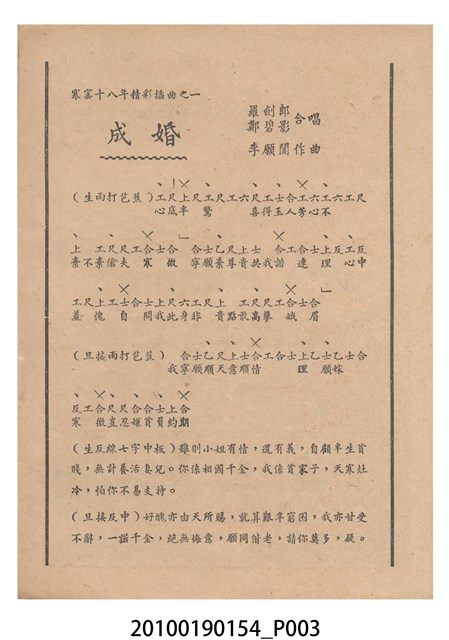 寒窰十八年精彩插曲之一
成婚
羅劍郎
鄭碧影 合唱
李願聞 作曲
(生雨打芭蕉)工尺上尺工尺工六尺工士合工六工六工尺
心底卑驚 喜得玉人芳心不
上工尺尺工合士合 合士乙尺上士 合工合士上反工反
棄不棄傖夫寒微 寧願素尊貴共我諧連理心中
工尺上工士合士上尺六工尺上工 尺尺工合士合
羞愧自問我此身非貴點敢高攀娥眉
(旦接雨打芭蕉) 合士乙尺上士合工合士上乙士乙士合
我寧願順天意願情 理願嫁
反工合尺尺合合士上合
寒微直忍嫌貧負約期
(生反線七字中板)雖則小姐有情,還有義,自顧卑生貧
賤,無計養活妻兒。你係相國千金,我係貧家子,天寒灶
冷,怕你不易支持。
(旦接反中)好醜亦由天所賜,就算艱辛窮困,我亦甘受
不辭,一諾千金,絕無悔意,願同偕老,請你莫多,疑。
20100190154_P003